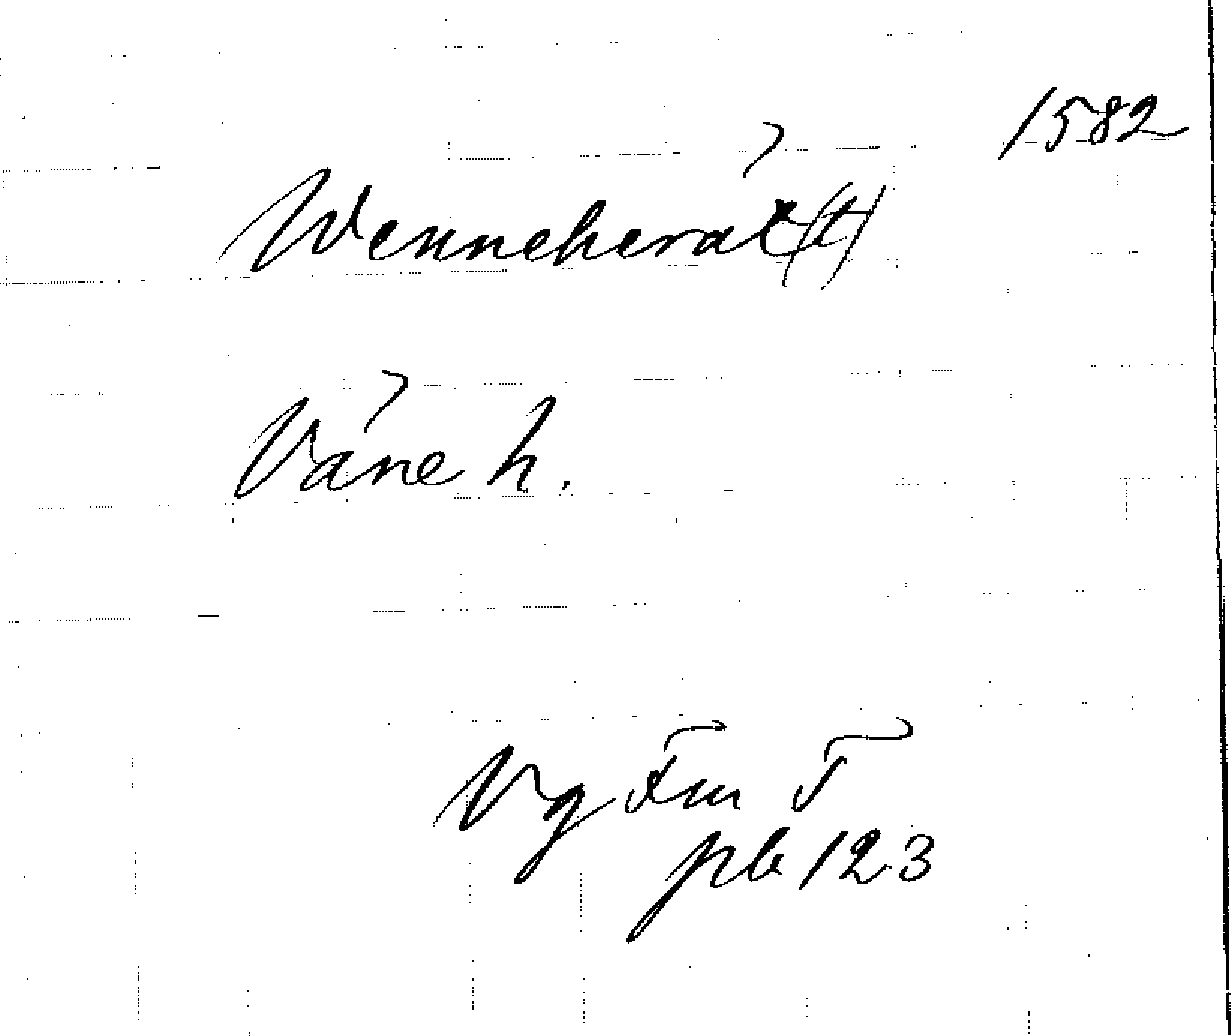 1582
Wenneherät(t)
Väne h.
Vg Fm T
pb 123